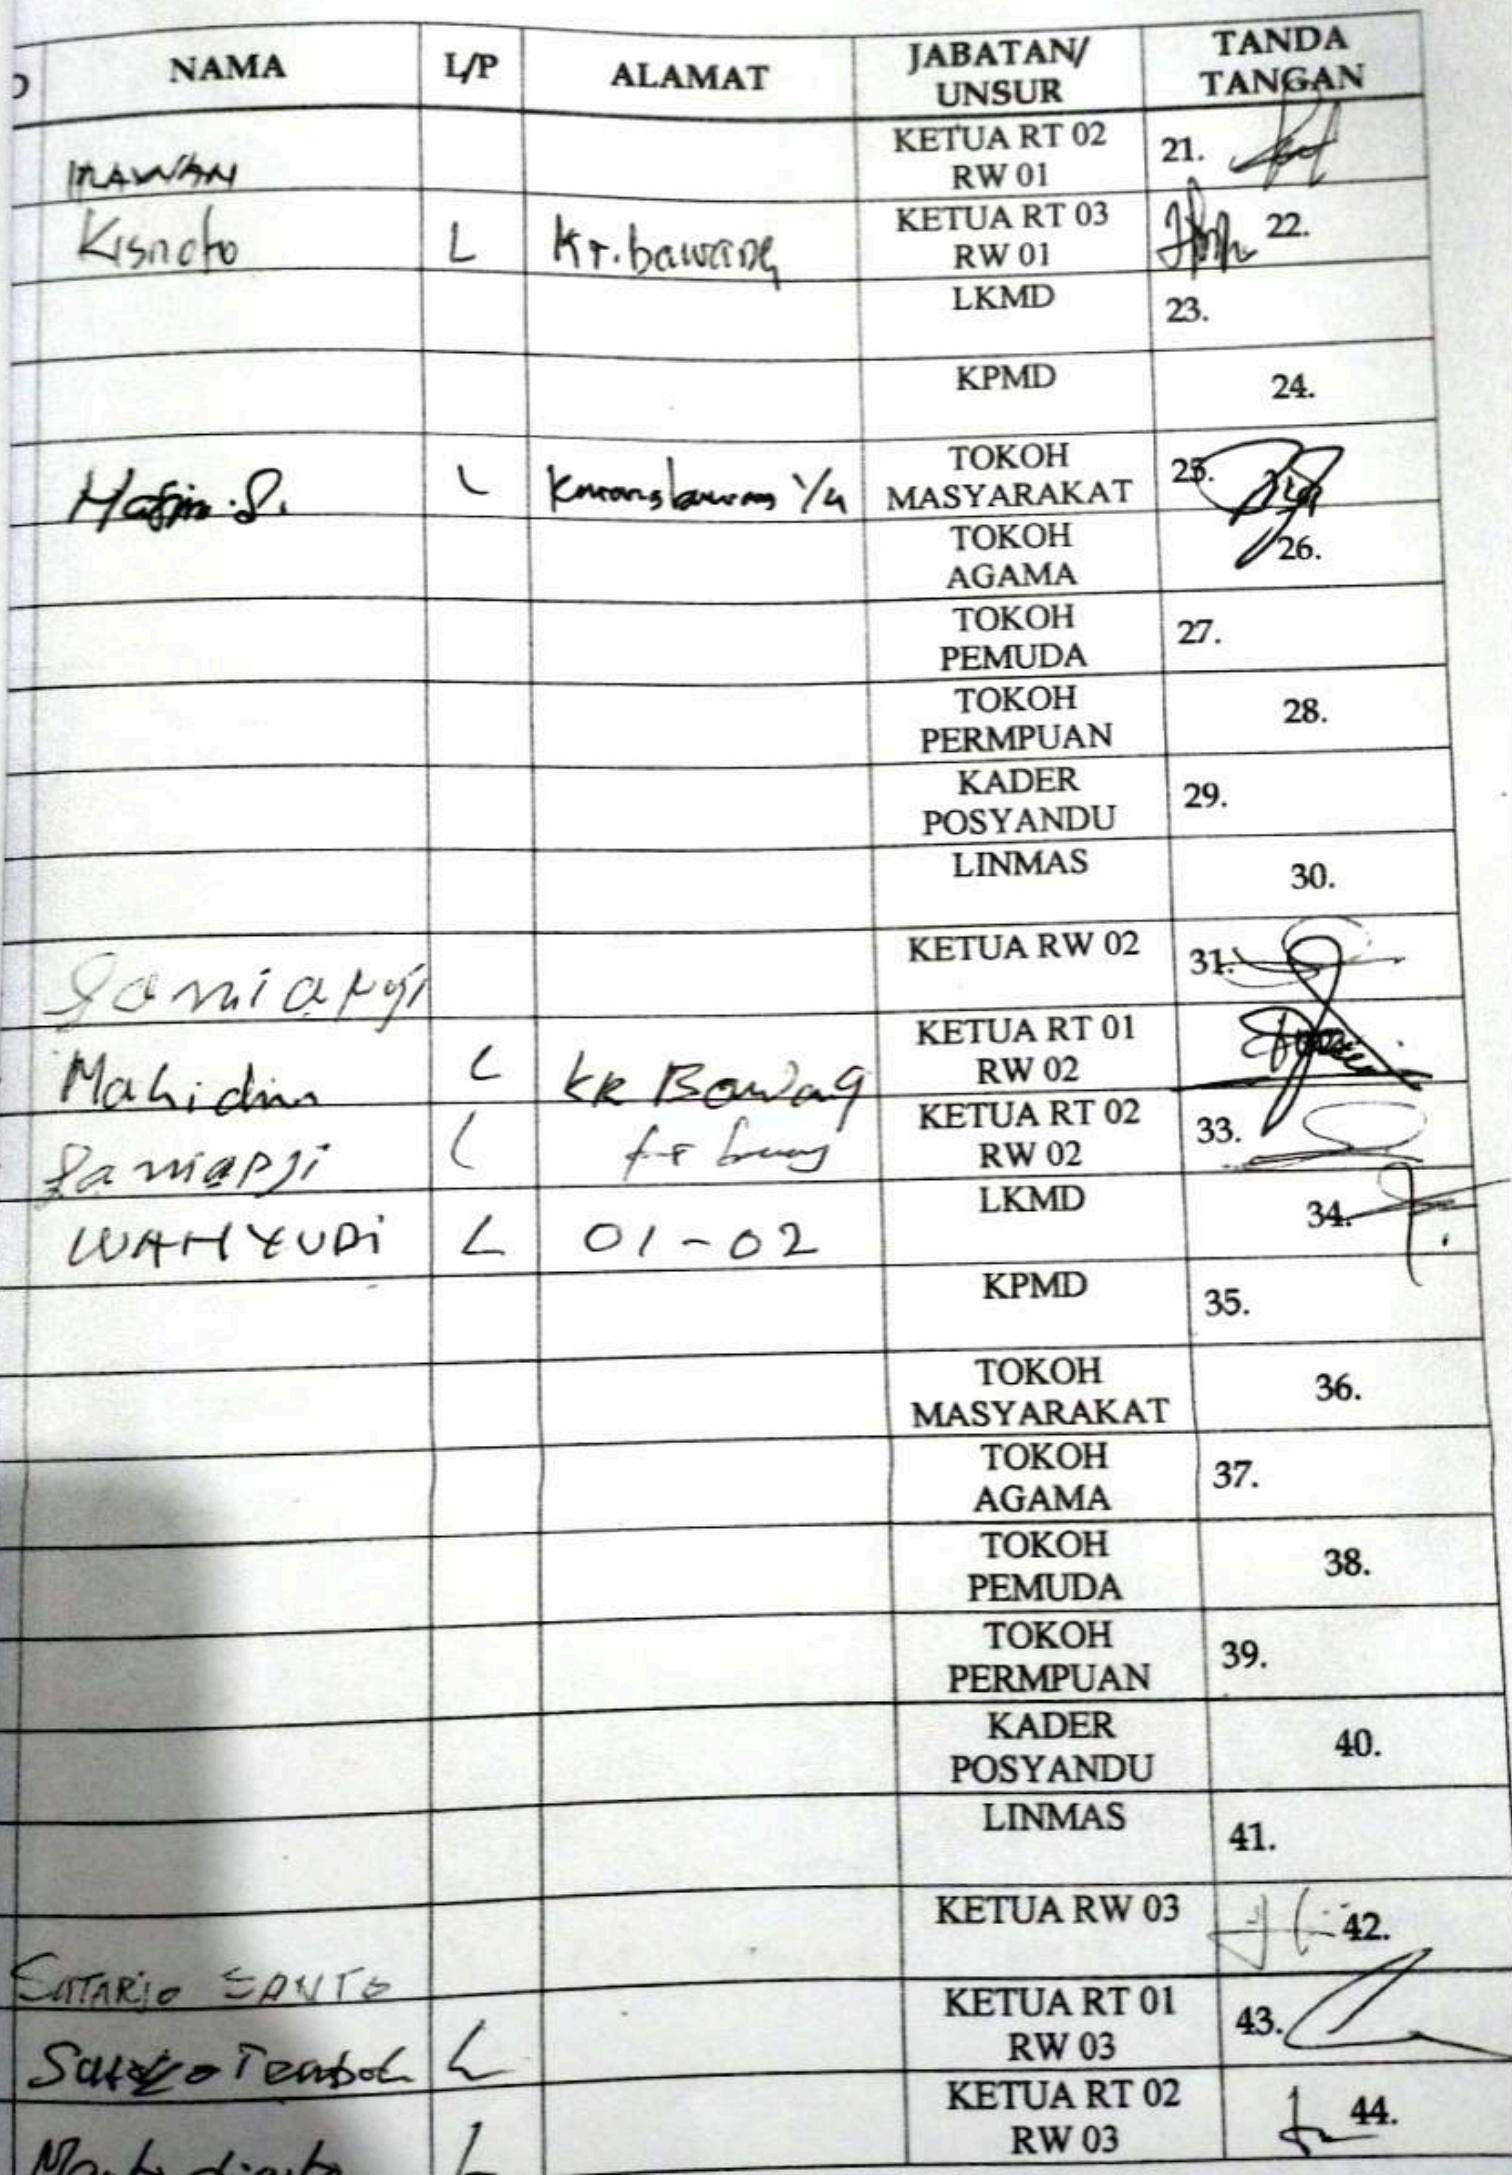 NAMA L/P ALAMAT JABATAN/ UNSUR TANDA TANGAN
IRAWAN KETUA RT 02 RW 01 21.
Kisnoto L Kr.bawang KETUA RT 03 RW 01 22.
LKMD 23.
KPMD 24.
L 1/4 TOKOH MASYARAKAT 25.
TOKOH AGAMA 26.
TOKOH PEMUDA 27.
TOKOH PERMPUAN 28.
KADER POSYANDU 29.
LINMAS 30.
KETUA RW 02 31.
Mahidin L KR Bawang KETUA RT 01 RW 02
L KETUA RT 02 RW 02 33.
WAHYUDI L 01-02 LKMD 34.
KPMD 35.
TOKOH MASYARAKAT 36.
TOKOH AGAMA 37.
TOKOH PEMUDA 38.
TOKOH PERMPUAN 39.
KADER POSYANDU 40.
LINMAS 41.
SUTARJO SANTO KETUA RW 03 42.
L KETUA RT 01 RW 03 43.
L KETUA RT 02 RW 03 44.